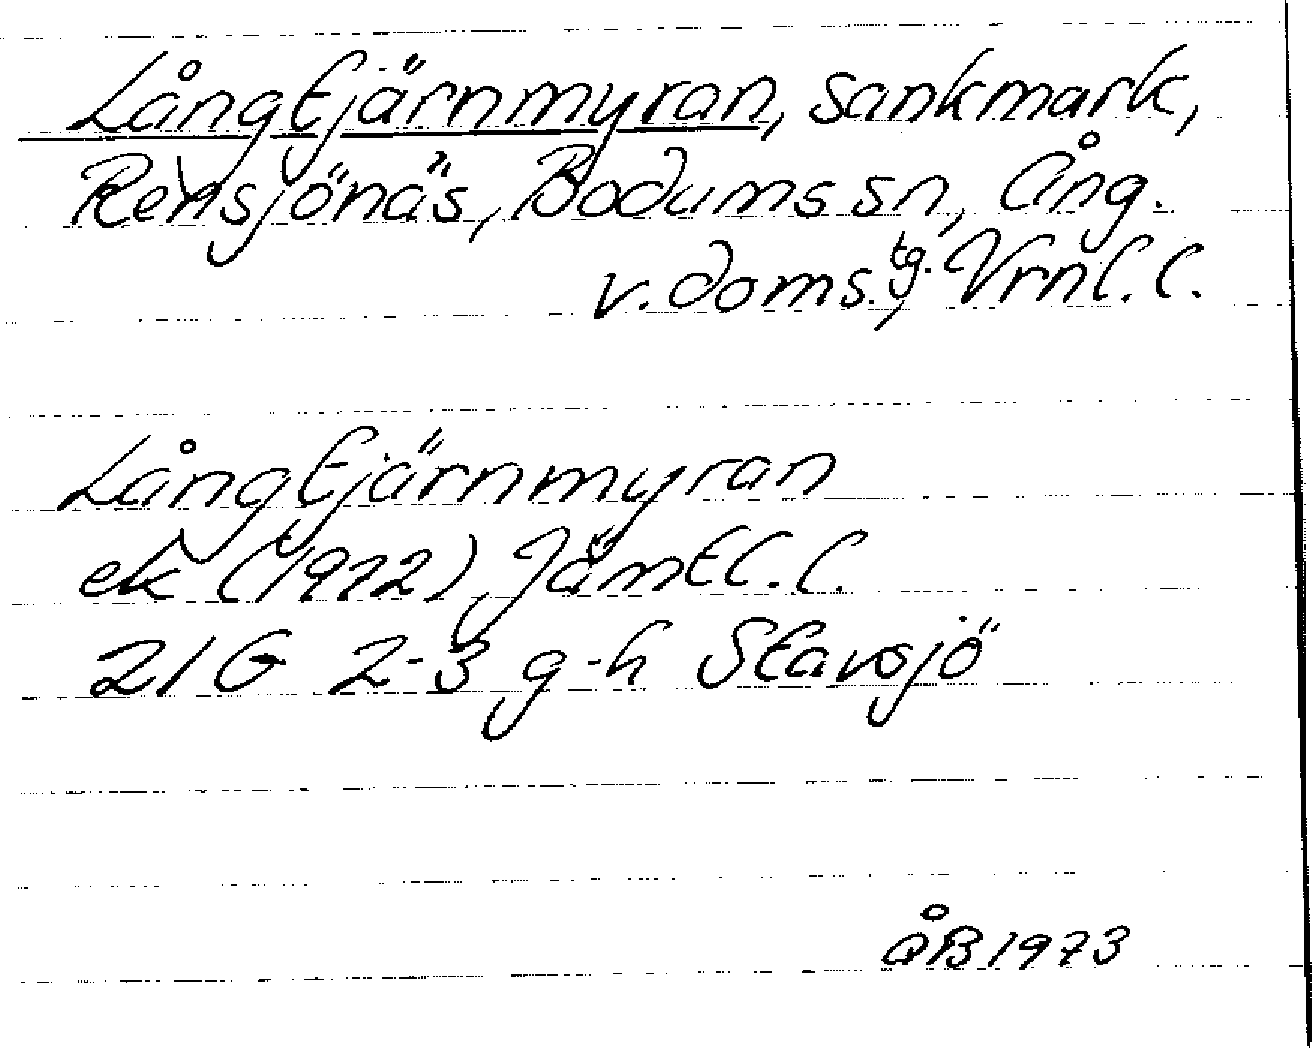 Långtjärnmyran, sankmark,
Rensjönäs, Bodums sn, Ång.
v. doms.tg., Vrnl. l.
Långtjärnmyran
ek (1972), Jämtl. l.
21G 2-3 g-h Stavsjö
ÅB 1973